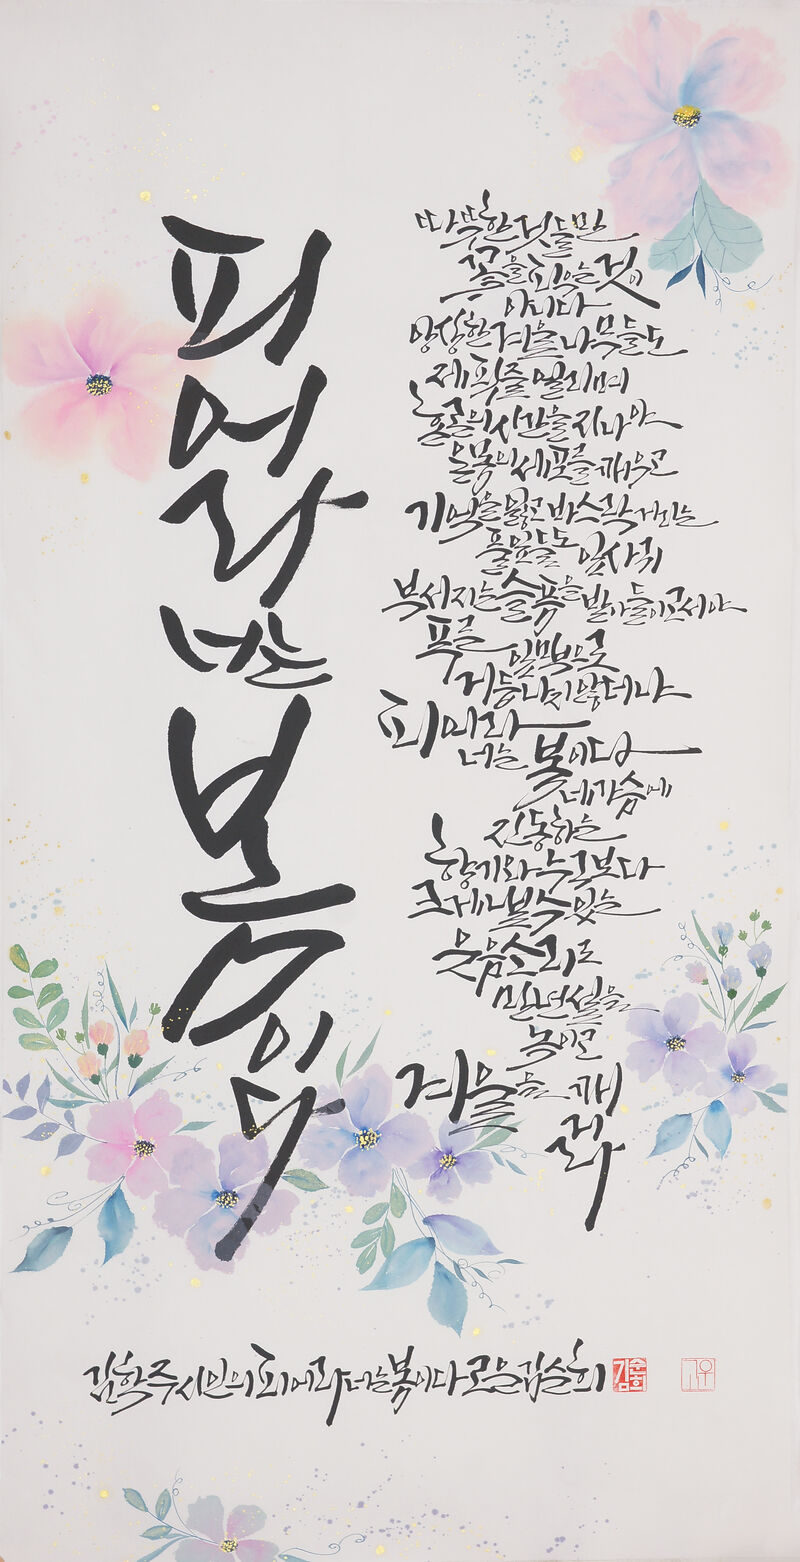 피어라
너는
봄이다
따뜻한 것들만
꽃을 피우는 것이
아니다
앙상한 겨울 나무들도
제 팍줄 열리며
혼돈의 시간을 지나야
온몸의 세포를 깨우고
기억을 잃고 바스락 거리는
풀잎들도 잎사귀
부서지는 슬픔을 받아들이고서야
푸른 잎맥으로
거듭나지 않더냐
피어라
너는 봄이다
네 가슴에
진동하는
향기와 누구보다
크게 낼 수 있는
웃음소리로
만년설을
녹이고
겨울을 깨
거라
김학주 시인의 피어라 너는 봄이다 고을 김순희